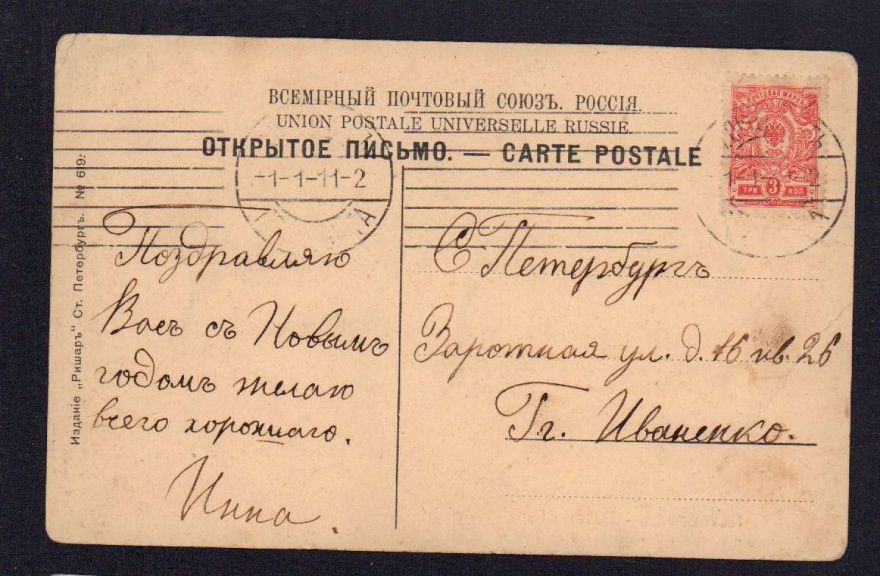 ВСЕМІРНЫЙ ПОЧТОВЫЙ СОЮЗЪ. РОССІЯ.
UNION POSTALE UNIVERSELLE RUSSIE.
ОТКРЫТОЕ ПИСЬМО. — CARTE POSTALE
-1-1-11-2
ПОЧТОВАЯ МАРКА
ТРИ 3 КОП.
Изданіе „Ришаръ" Ст. Петербургъ. № 619.
Поздравляю
Васъ съ Новымъ
годомъ желаю
всего хорошаго.
Инна
С Петербургъ
ул. д. 16 кв. 26
Гг. Иваненко.